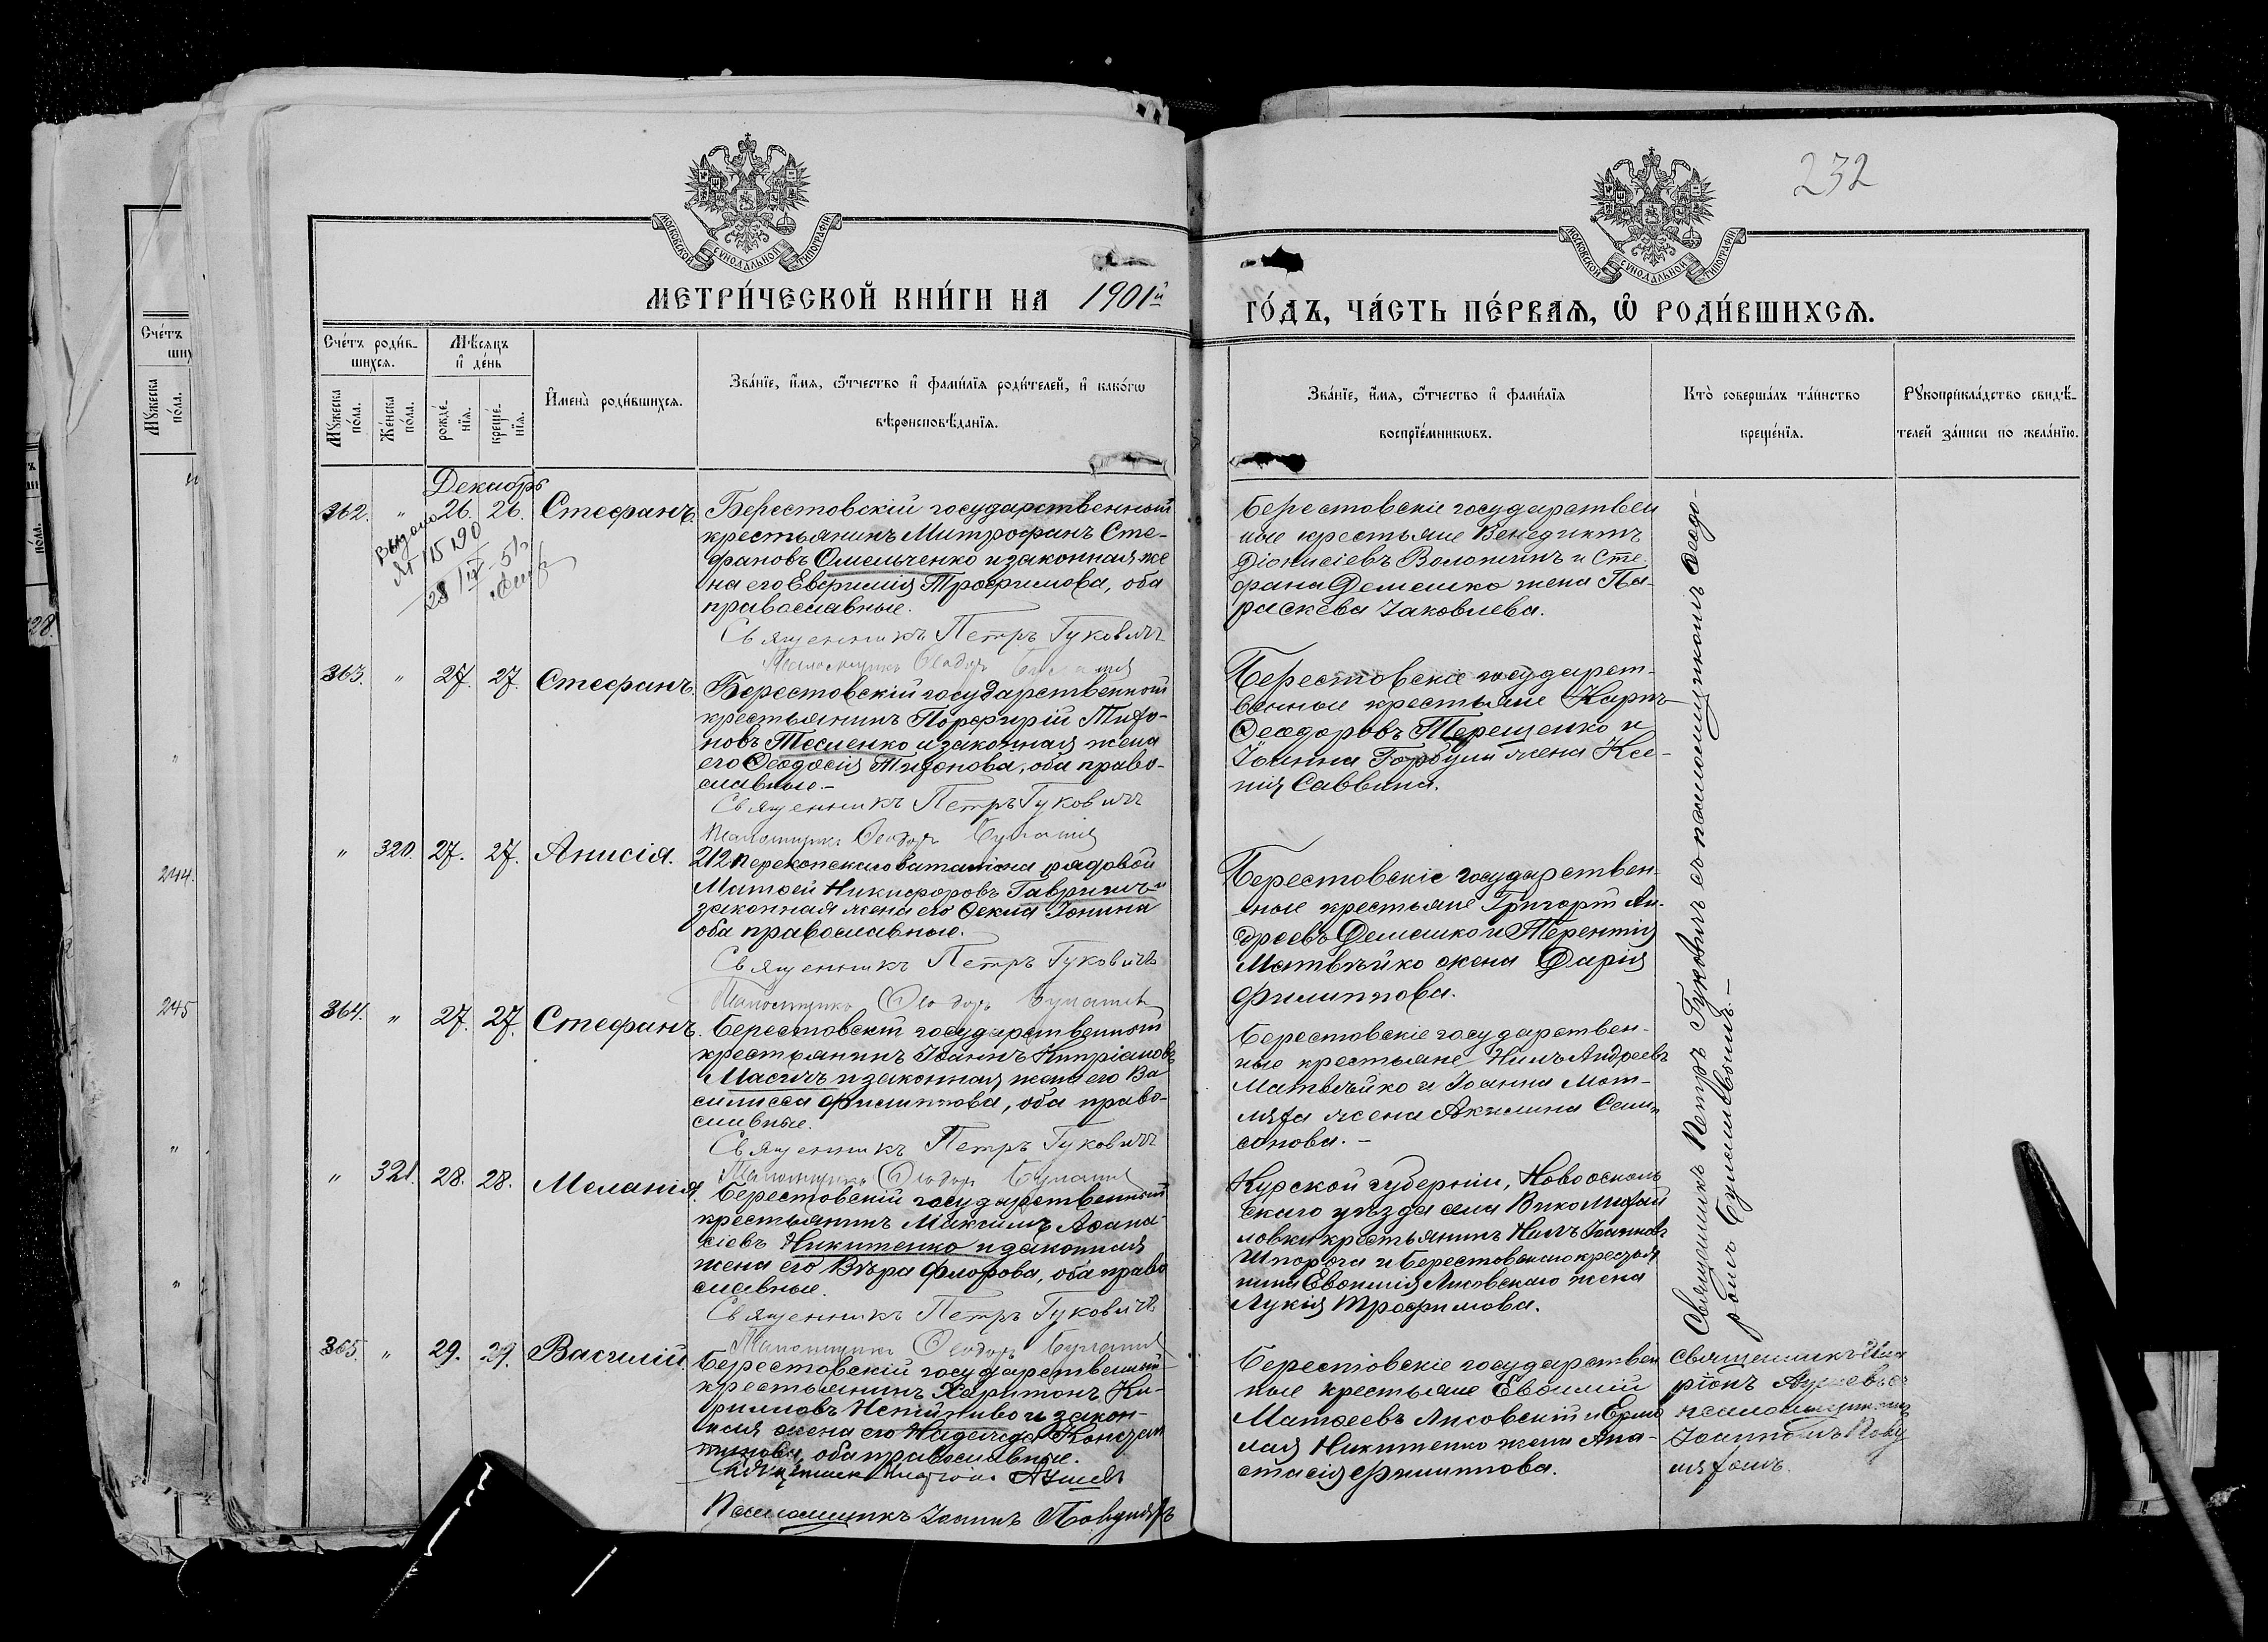 232
МОСКОВСКОЙ СѴНОДАЛЬНОЙ ТИПОГРАФІИ
МОСКОВСКОЙ СѴНОДАЛЬНОЙ ТИПОГРАФІИ
МЕТРИ́ЧЕСКОЙ КНИ́ГИ НА 1901й
ГО́ДЪ, ЧА́СТЬ ПЕ́РВАѦ, Ѡ҆ РОДИ́ВШИХСѦ.
Сче́тъ роди́в-
шихсѧ.
Мѣ́сѧцъ
и҆ де́нь
Мꙋ́жеска по́ла.
Же́нска по́ла.
рожде́-
нїѧ.
креще́-
нїѧ.
И҆мена̀ роди́вшихсѧ.
Зва́нїе, и҆́мѧ, ѻ҆́тчество и҆ фами́лїѧ роди́телей, и҆ како́гѡ
вѣроисповѣ́данїѧ.
Зва́нїе, и҆́мѧ, ѻ҆́тчество и҆ фами́лїѧ
воспрїе́мникѡвъ.
Кто̀ соверша́лъ та́инство
креще́нїѧ.
Рꙋкоприкла́дство свидѣ́-
телей за́писи по жела́нїю.
Декабрь
362. " 26. 26. Стефанъ.
Выдано
№ 115190
28/IV-51г
Берестовскій государственный
крестьянинъ Митрофанъ Сте-
фановъ Омельченко и законная же
на его Евфимія Трофимова, оба
православные.
Священникъ Петръ Гуковичъ
Псаломщикъ Ѳеодоръ
Берестовскіе государствен
ные крестьяне Венедиктъ
Діонисіевъ Волошинъ и Сте
фана Демешко жена Па-
раскева Іаковлева.
363. " 27. 27. Стефанъ.
Берестовскій государственный
крестьянинъ Порфирій Тихо-
новъ Тесленко и законная жена
его Ѳеодосія Тихонова, оба право-
славные.-
Священникъ Петръ Гуковичъ
Псаломщикъ Ѳеодоръ
Берестовскіе государст-
венные крестьяне Карпъ
Ѳеодоровъ Терещенко и
Іоанна Горбули жена Ксе-
нія Саввина.
" 320. 27. 27. Анисія.
212 Перекопскаго баталіона рядовой
Матѳей Никифоровъ Гавришъ и
законная жена его Ѳекла Іонина
оба православные.
Священникъ Петръ Гуковичъ
Псаломщикъ Ѳеодоръ
Берестовскіе государствен-
ные крестьяне Григорій Ан-
дреевъ Демешко и Терентія
Матвѣйко жена Дарія
Филиппова.
364. " 27. 27. Стефанъ.
Берестовскій государственный
крестьянинъ Іоаннъ Кипріановъ
Масичъ и законная жена его Ва
силисса Филиппова, оба право-
славные.
Священникъ Петръ Гуковичъ
Псаломщикъ Ѳеодоръ
Берестовскіе государствен-
ные крестьяне Нилъ Андреевъ
Матвѣйко и Іоанна
жена Акилина Самп
сонова. -
" 321. 28. 28. Меланія.
Берестовскій государственный
крестьянинъ Максимъ Аѳана-
сіевъ Никитенко и законная
жена его Вѣра Флорова, оба право
славные.
Священникъ Петръ Гуковичъ
Псаломщикъ Ѳеодоръ
Курской губерніи, Новоосколь
скаго уѣзда села
крестьянинъ Нилъ Іоанновъ
Шпорога и Берестовскаго крестья
нина Евѳимія Лисовскаго жена
Лукія Трофимова.
Священникъ Петръ Гуковичъ съ псаломщикомъ Ѳеодо-
ромъ
365. " 29. 29. Василій.
Берестовскій государственный
крестьянинъ Харитонъ Ки-
рилловъ и закон-
ная жена его Надежда Констан
тинова, оба православные.
Священникъ
Псаломщикъ Іоаннъ
Берестовскіе государствен
ные крестьяне Евѳимій
Матѳеевъ Лисовскій и Ермо
лая Никитенко жена Ана-
стасія Филиппова.
Священникъ Ила
ріонъ
псаломщикомъ
Іоанномъ
Сче́тъ
Мꙋ́жеска по́ла.
244.
245